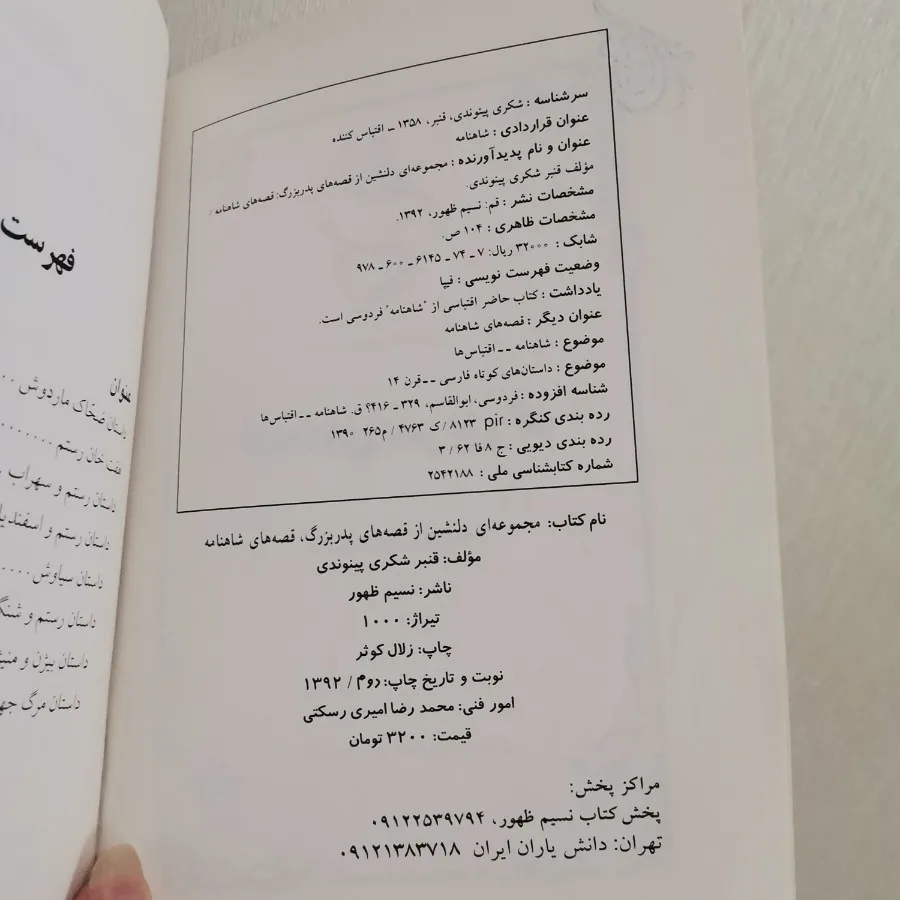 سرشناسه : شکری پینوندی، قنبر، ۱۳۵۸ ـ اقتباس کننده
عنوان قراردادی : شاهنامه
عنوان و نام پدیدآورنده : مجموعه‌ای دلنشین از قصه‌های پدربزرگ: قصه‌های شاهنامه /
مؤلف قنبر شکری پینوندی.
مشخصات نشر : قم: نسیم ظهور، ۱۳۹۲.
مشخصات ظاهری : ۱۰۴ ص.
شابک : ۳۲۰۰۰ ریال: ۷ ـ ۷۴ ـ ۶۱۴۵ ـ ۶۰۰ ـ ۹۷۸
وضعیت فهرست نویسی : فیپا
یادداشت : کتاب حاضر اقتباسی از "شاهنامه" فردوسی است.
عنوان دیگر : قصه‌های شاهنامه
موضوع : شاهنامه ــ اقتباس‌ها
موضوع : داستان‌های کوتاه فارسی ــ قرن ۱۴
شناسه افزوده : فردوسی، ابوالقاسم، ۳۲۹ ـ ۴۱۶؟ ق. شاهنامه ــ اقتباس‌ها
رده بندی کنگره : pir ۸۱۲۳ /ک ۴۷۶۳ / م۲۶۵ ۱۳۹۰
رده بندی دیویی : ج ۸ فا ۶۲ / ۳
شماره کتابشناسی ملی : ۲۵۴۲۱۸۸
نام کتاب: مجموعه‌ای دلنشین از قصه‌های پدربزرگ، قصه‌های شاهنامه
مؤلف: قنبر شکری پینوندی
ناشر: نسیم ظهور
تیراژ: ۱۰۰۰
چاپ: زلال کوثر
نوبت و تاریخ چاپ: دوم / ۱۳۹۲
امور فنی: محمد رضا امیری رسکتی
قیمت: ۳۲۰۰ تومان
مراکز پخش:
پخش کتاب نسیم ظهور، ۰۹۱۲۲۵۳۹۷۹۴
تهران: دانش یاران ایران ۰۹۱۲۱۳۸۳۷۱۸
فهرست
عنوان
داستان ضحّاک ماردوش
هفت خان رستم
داستان رستم و سهراب
داستان رستم و
داستان سیاوش
داستان رستم و
داستان بیژن و
داستان مرگ